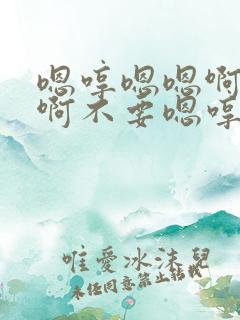 嗯哼嗯嗯啊
啊不要嗯哼
唯愛冰沫兒
未经同意禁止转载